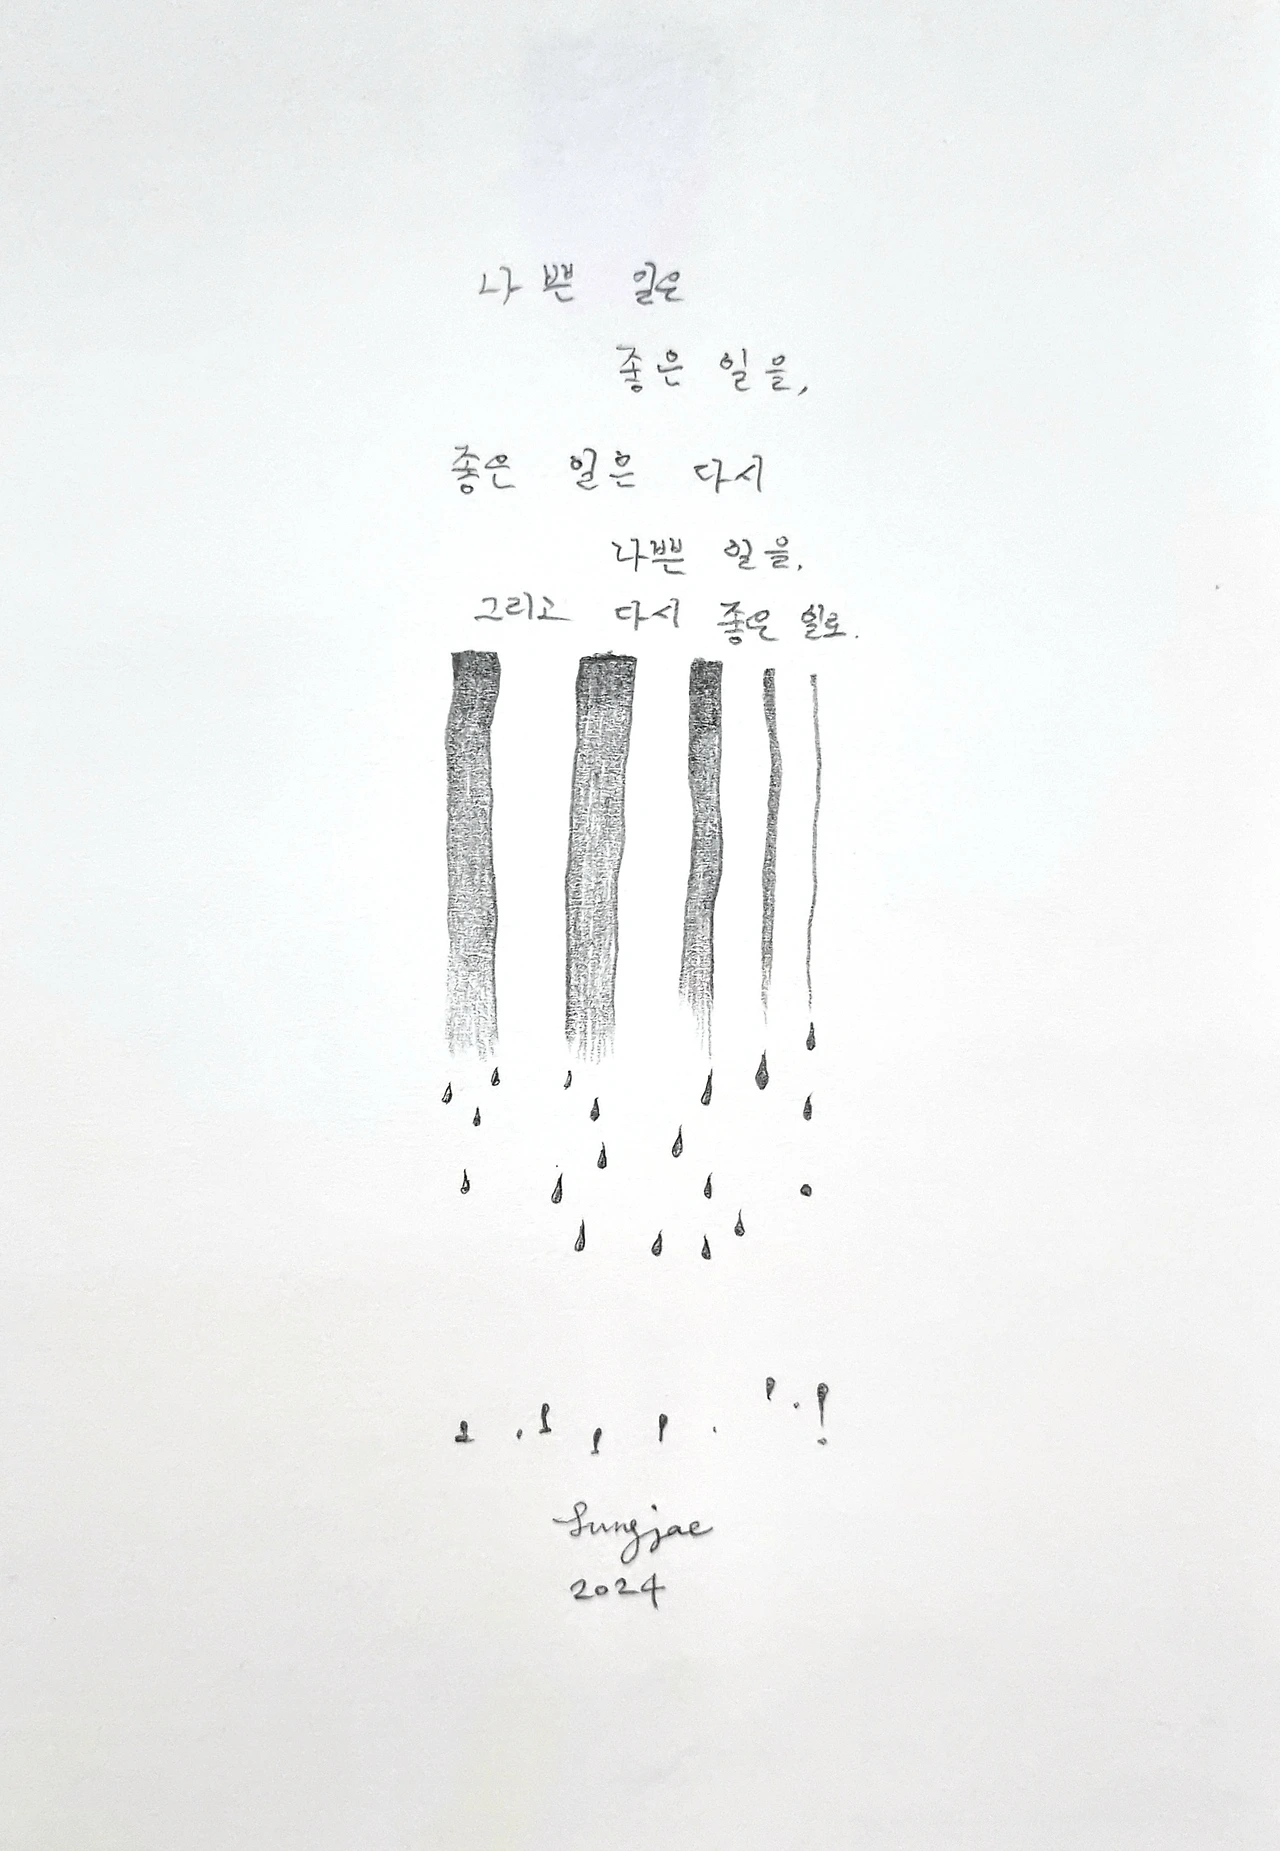 나쁜 일은
좋은 일을,
좋은 일은 다시
나쁜 일을,
그리고 다시 좋은 일로.
Sungjae
2024